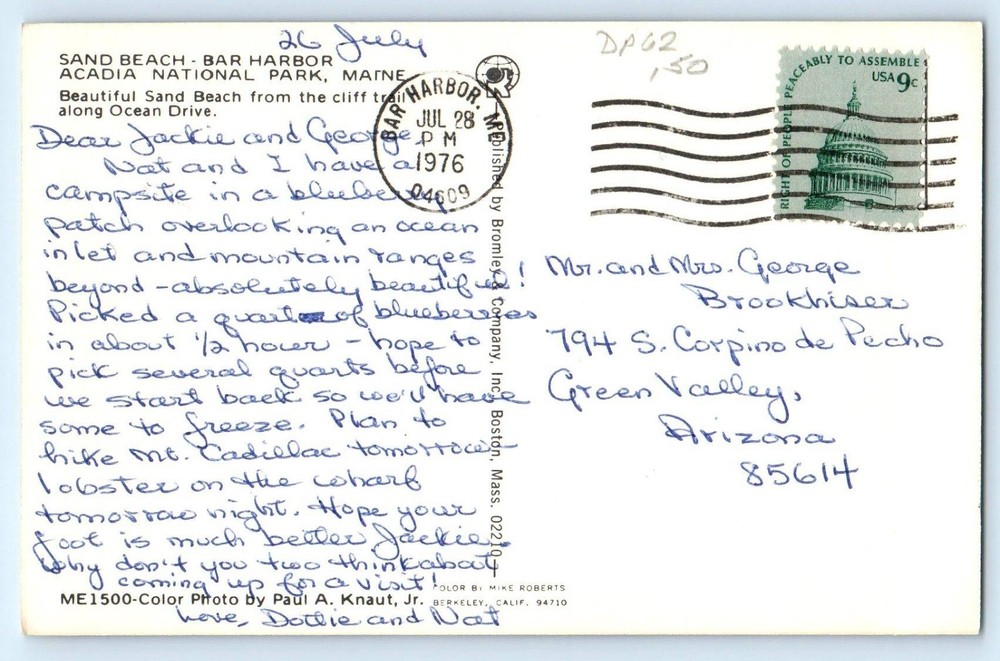 26 July
SAND BEACH - BAR HARBOR
ACADIA NATIONAL PARK, MAINE
Beautiful Sand Beach from the cliff trail
along Ocean Drive.
Dear Jackie and George,
Nat and I have a
campsite in a blueberry
patch overlooking an ocean
inlet and mountain ranges
beyond - absolutely beautiful!
Picked a quart of blueberries
in about 1/2 hour - hope to
pick several quarts before
we start back so we'll have
some to freeze. Plan to
hike Mt. Cadillac tomorrow -
lobster on the wharf
tomorrow night. Hope your
foot is much better Jackie.
Why don't you two think about
coming up for a visit!
Love, Dottie and Nat
ME1500-Color Photo by Paul A. Knaut, Jr.
COLOR BY MIKE ROBERTS
BERKELEY, CALIF. 94710
Published by Bromley & Company, Inc. Boston, Mass. 02210
BAR HARBOR, ME
JUL 28
PM
1976
04609
DP62
,50
RIGHT OF PEOPLE PEACEABLY TO ASSEMBLE
USA 9c
Mr. and Mrs. George
Brookhiser
794 S. Corpino de Pecho
Green Valley,
Arizona
85614